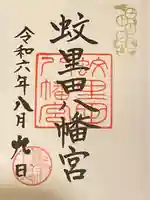 蚊里田八幡宮
令和六年八月九日